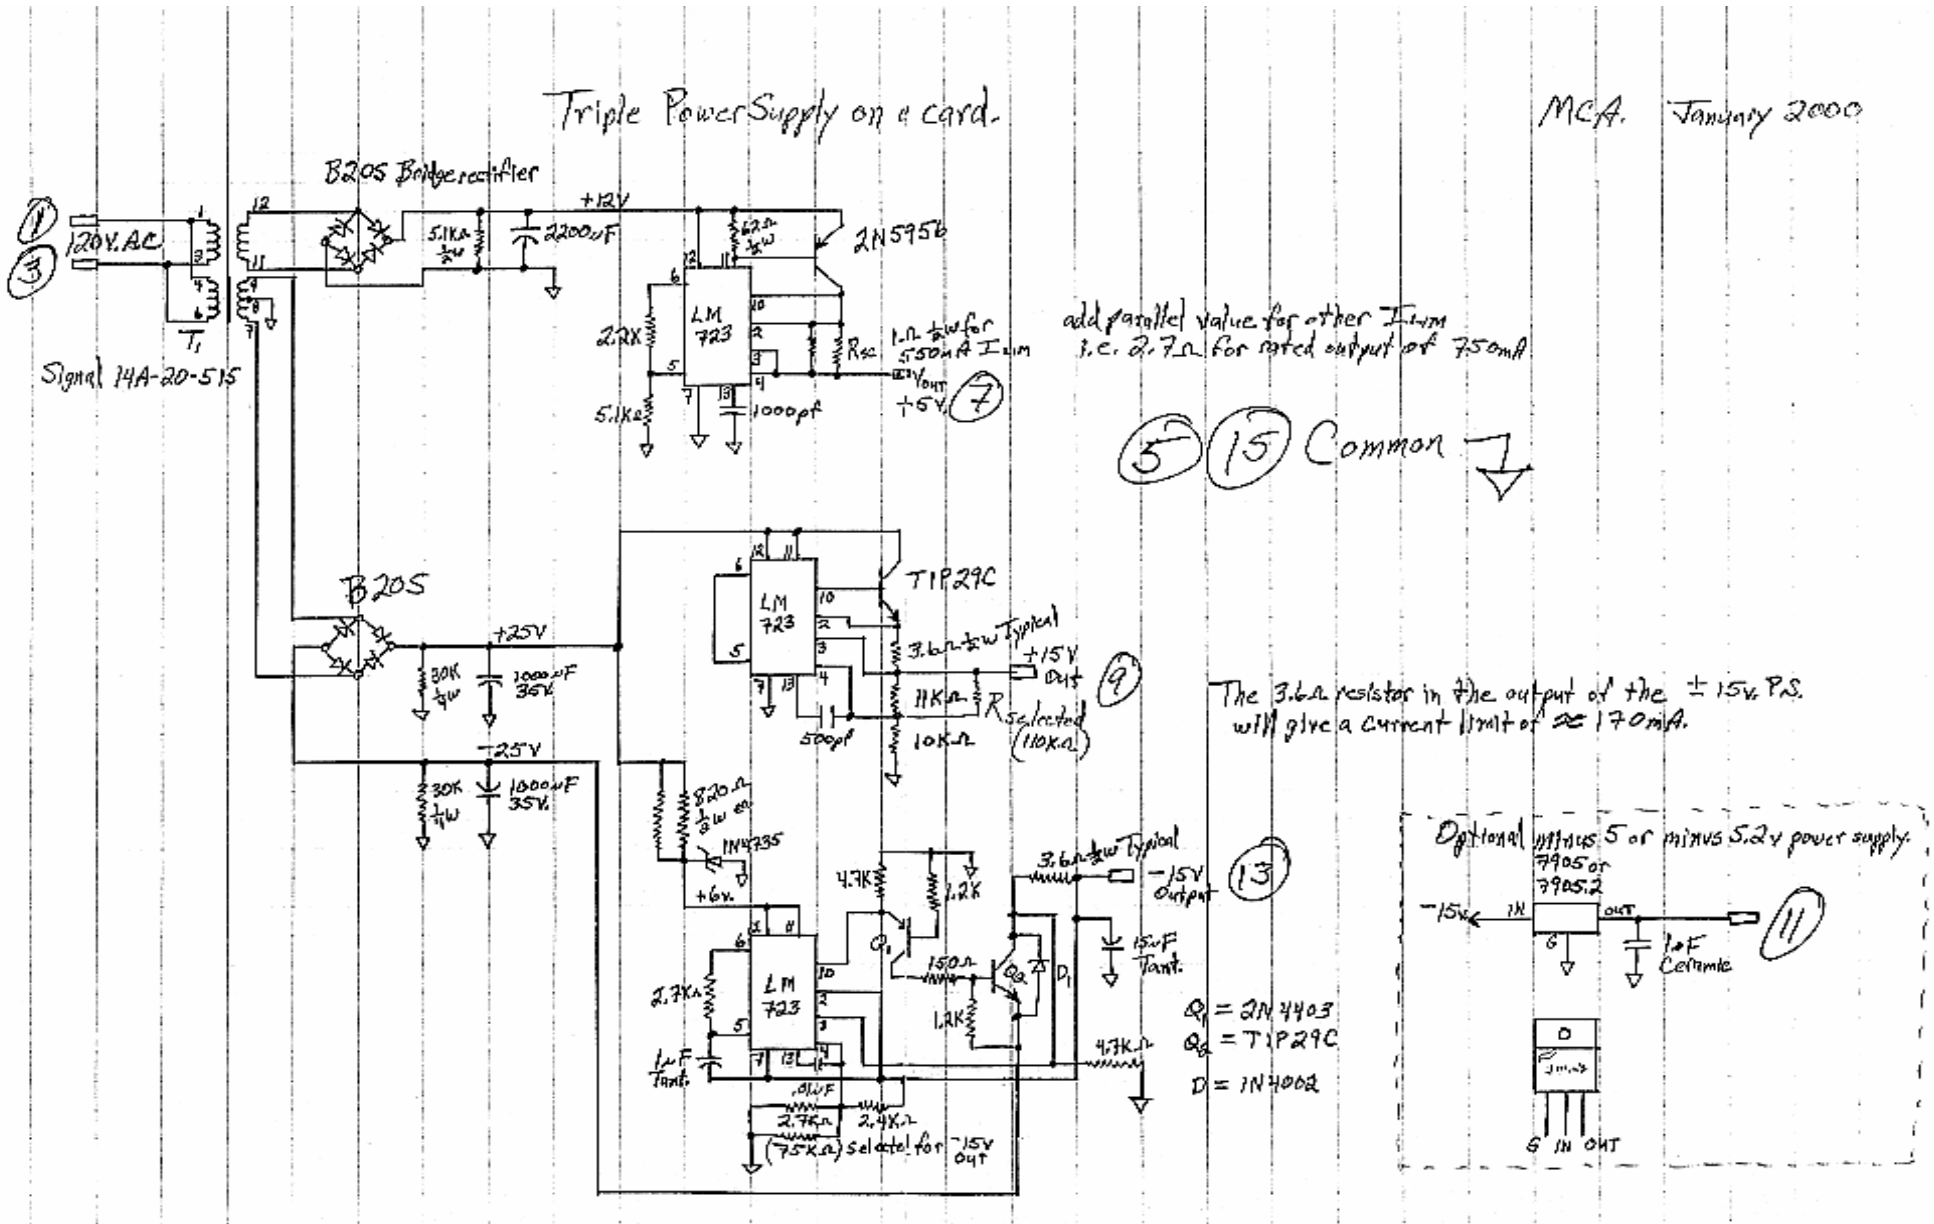 Triple Power Supply on a card.
MCA. January 2000
B205 Bridge rectifier
1
120V.AC
3
1
2
4
6
12
11
9
8
7
T1
Signal 14A-20-515
5.1KΩ
1/2W
2200uF
+12V
62Ω
1/2W
2N5956
12
11
6
10
LM
723
2
3
4
5
7
13
2.2K
5.1KΩ
1000pf
Rsc
1Ω 1/2W for
550mA ILIM
VOUT
+5V
7
add parallel value for other ILIM
i.e. 2.7Ω for rated output of 750mA
5 15 Common
B205
+25V
30K
1/4W
1000uF
35V
-25V
30K
1/4W
1000uF
35V.
12
11
6
10
LM
723
2
3
4
5
7
13
500pf
TIP29C
3.6Ω 1/2W Typical
+15V
Out
9
11KΩ
10KΩ
Rselected
(110KΩ)
The 3.6Ω resistor in the output of the ± 15v. P.S.
will give a current limit of ≈ 170mA.
820Ω
1/2W ea
1N4735
+6v.
4.7K
1.2K
Q1
150Ω
1.2K
Q2
D1
3.6Ω 1/2W Typical
-15V
Output
13
15uF
Tant.
4.7KΩ
11
6
10
LM
723
2
3
4
5
7
13
2.7KΩ
1uF
Tant.
.01uF
2.7KΩ
2.4KΩ
(75KΩ) Selected for -15V
OUT
Q1 = 2N4403
Q2 = TIP29C
D = 1N4002
Optional minus 5 or minus 5.2v power supply.
7905 or
7905.2
-15v
IN
OUT
G
11
1uF
Ceramic
G IN OUT